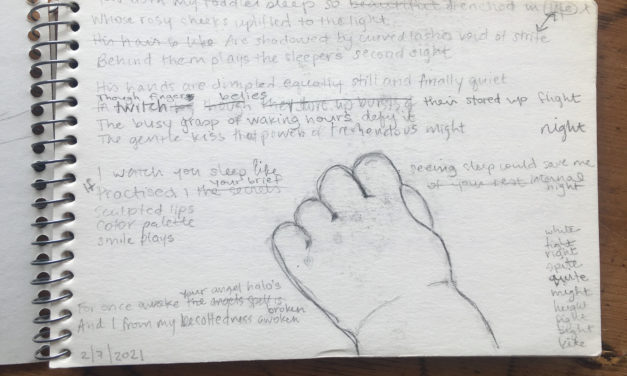 my toddler sleep so beautiful drenched in (life)
Whose rosy cheeks uplifted to the light
His hair is like Are shadowed by curved lashes void of strife
Behind them plays the sleepers second sight
His hands are dimpled equally still and finally quiet
Though fingers belies
twitch their stored up flight
The busy grasp of waking hours defy it
The gentle kiss that power a tremendous might night
I watch you sleep like
seeing sleep could save me
If your brief
Practised, the secrets
of your rest internal
night
Sculpted lips
Color palette
Smile plays
white
fight
right
spite
quite
might
height
light
kite
your angel halo's
For once awoke the angels spell is
broken
And I from my becottedness awoken
2/7/2021